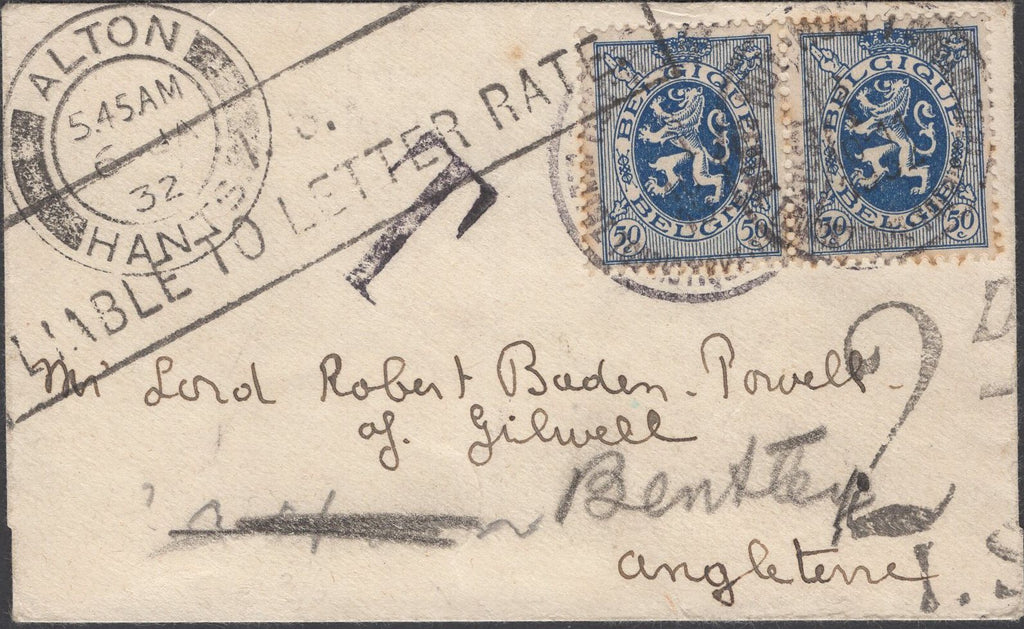 ALTON
5.45AM
6 JA
32
HANTS
LIABLE TO LETTER RATE
T
BELGIQUE
BELGIË
50 50
BELGIQUE
BELGIË
50 50
Mr Lord Robert Baden-Powell-
of. Gilwell
Bentley
Angleterre
2
D
I.S